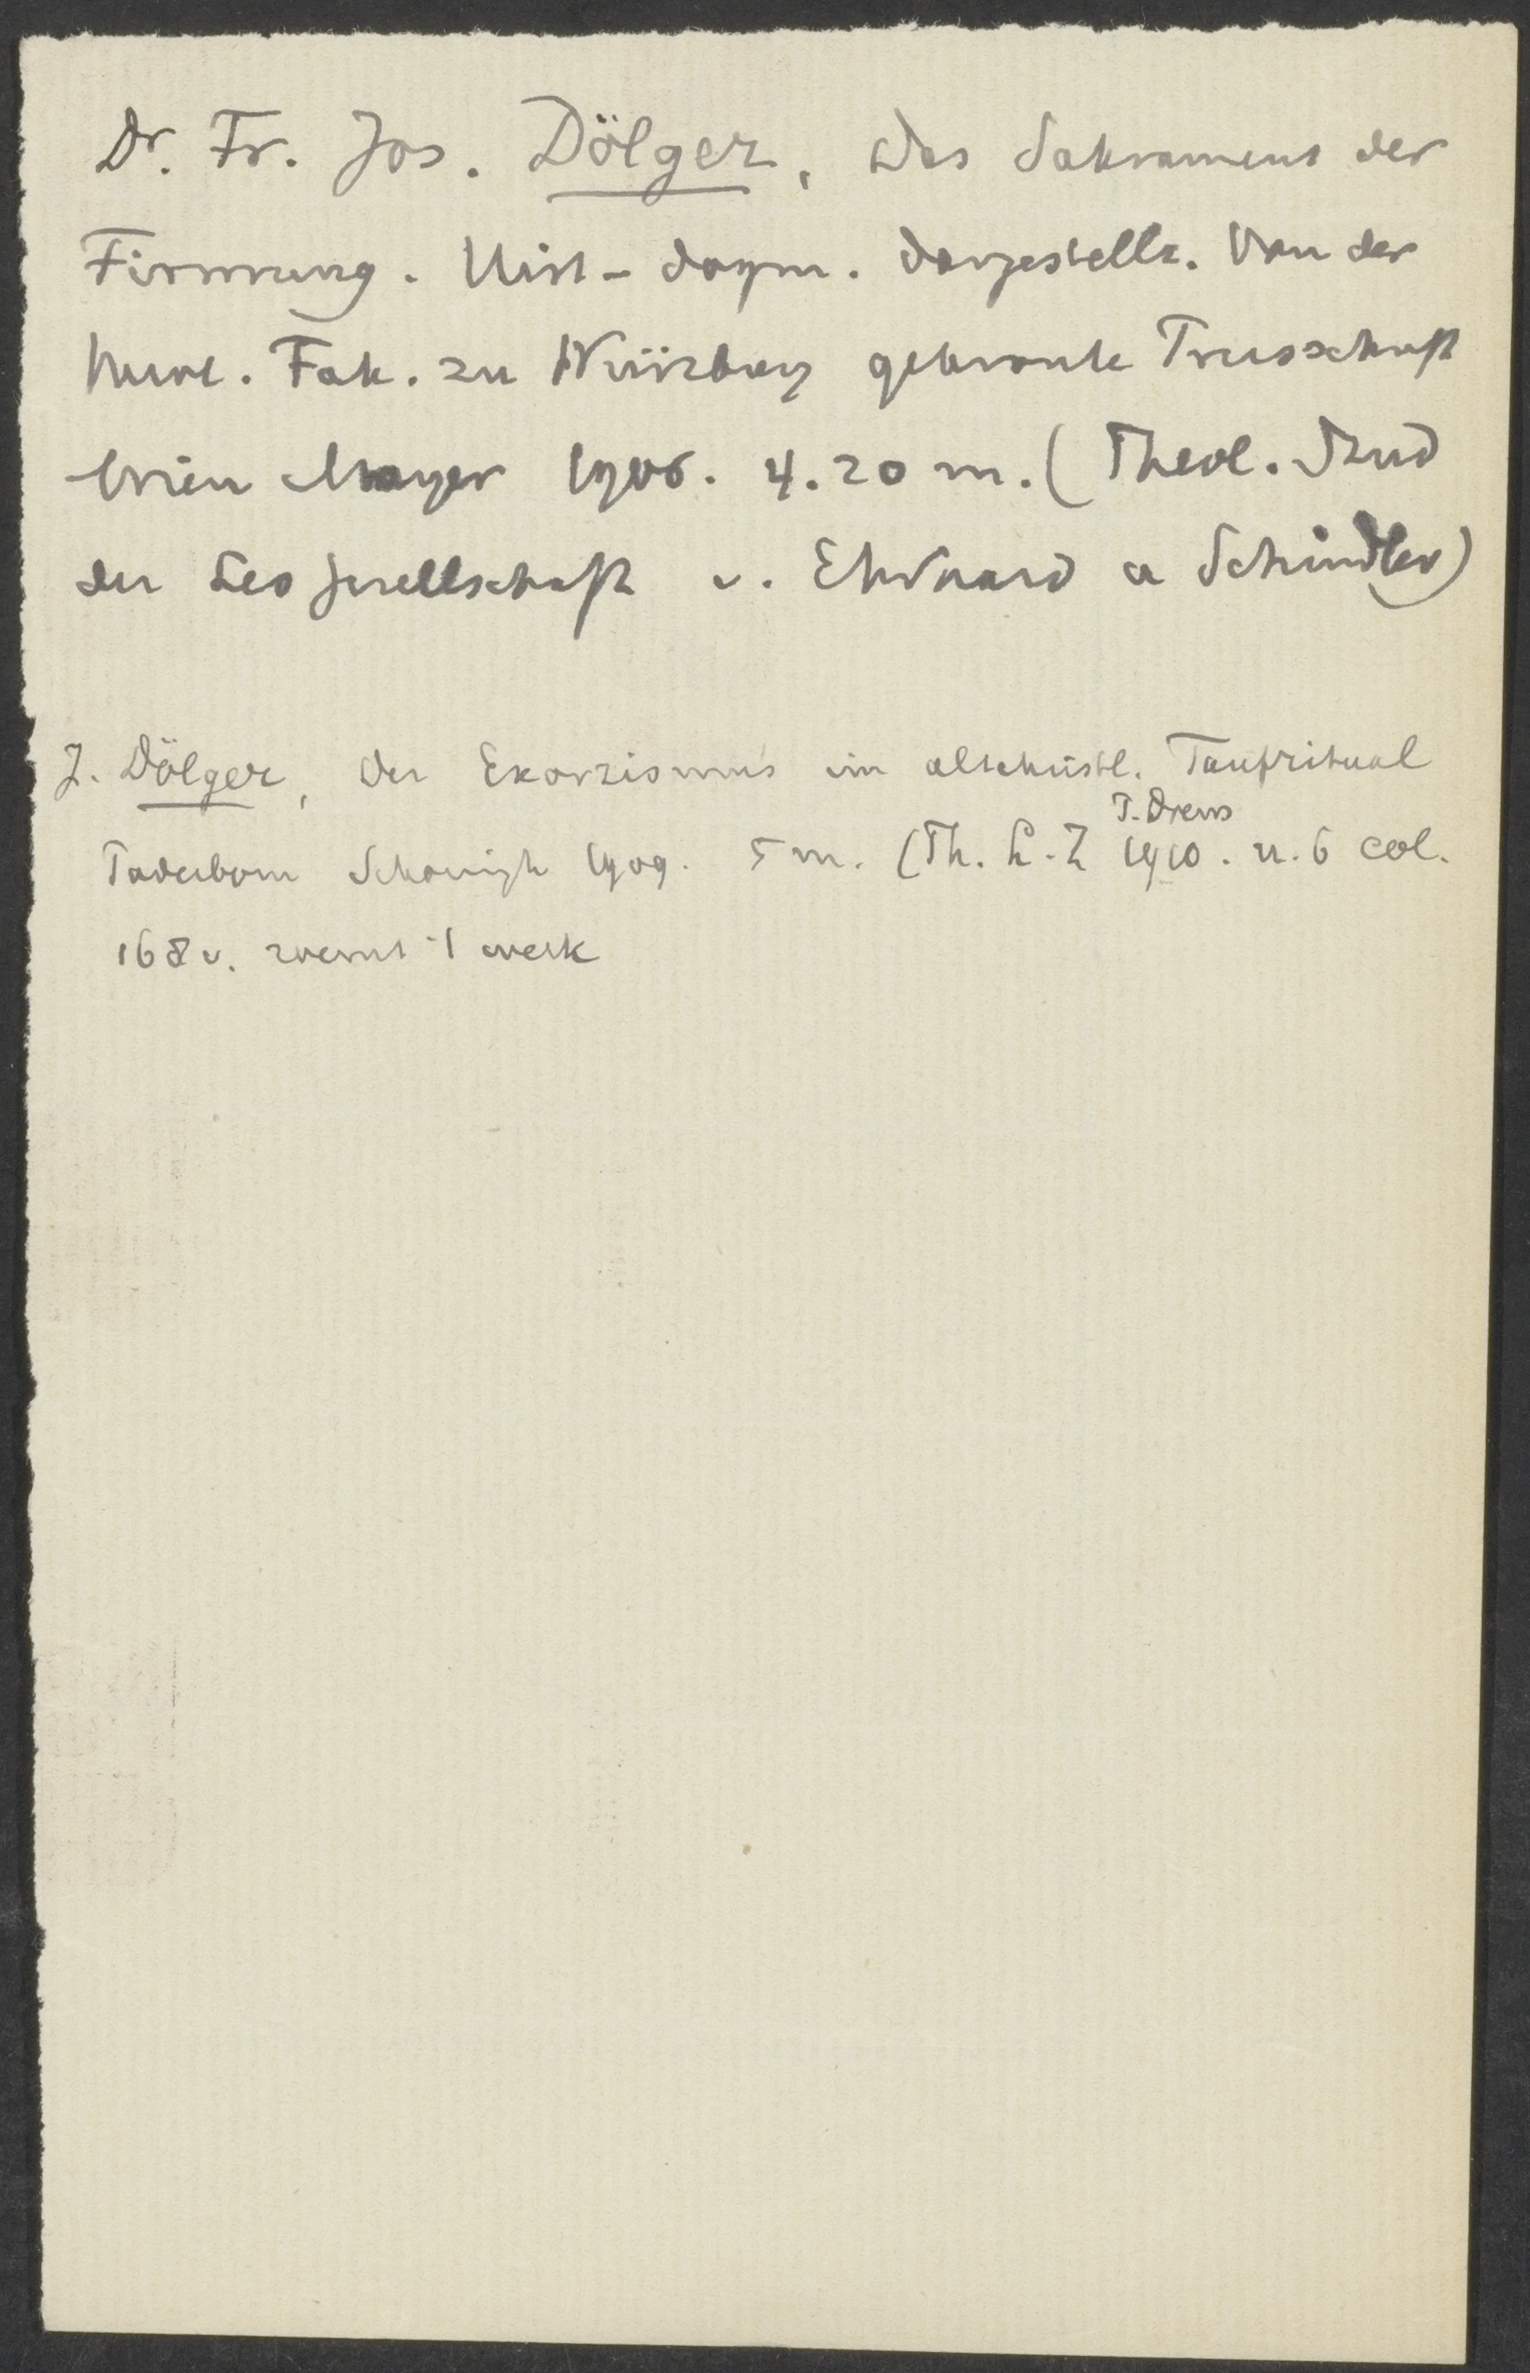 Dr. Fr. Jos. Dölger, Das Sakrament der
Firmung. Hist-dogm. dargestellt. Von der
theol. Fak. zu Würzburg gekronte Preisschrift
Wien Mayer 1906. 4.20 m. (Theol. Stud
der Leo gesellschaft v. Ehrhard u Schindler)
J. Dölger, Der Exorzismus im altchristl. Taufritual
P. Drews
Paderborn Schöningh 1909. 5 m. (Th. L. Z 1910. n. 6 col.
168 v. roemt 't werk